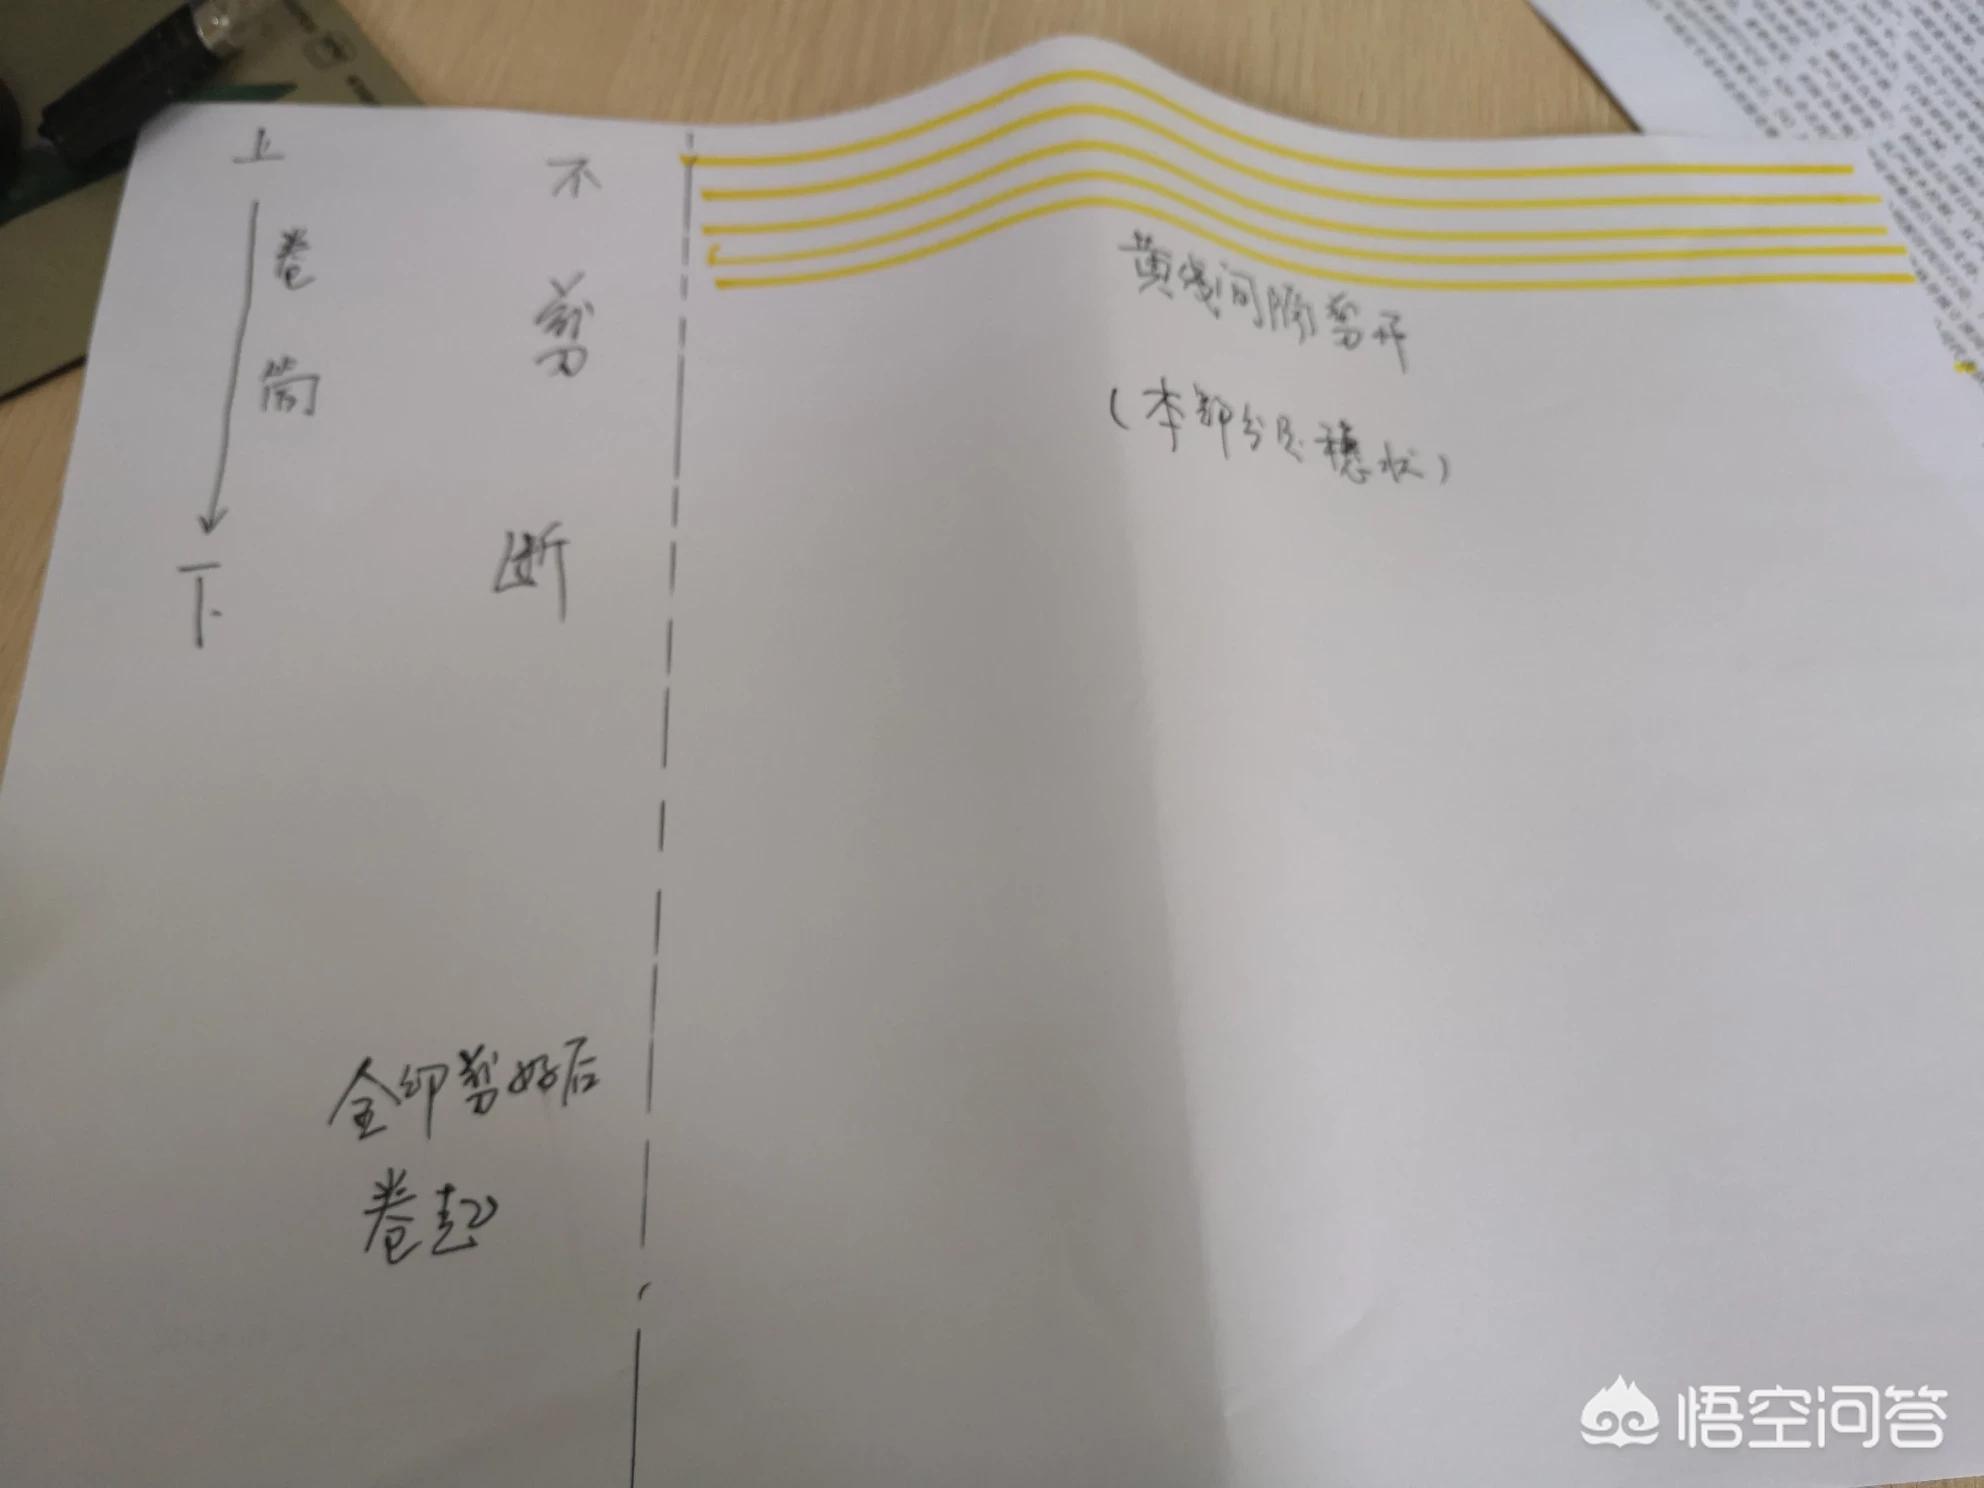 上
卷筒
下
不剪断
黄线间隙剪开
(本部分呈穗状)
全部剪好后
卷起
悟空问答